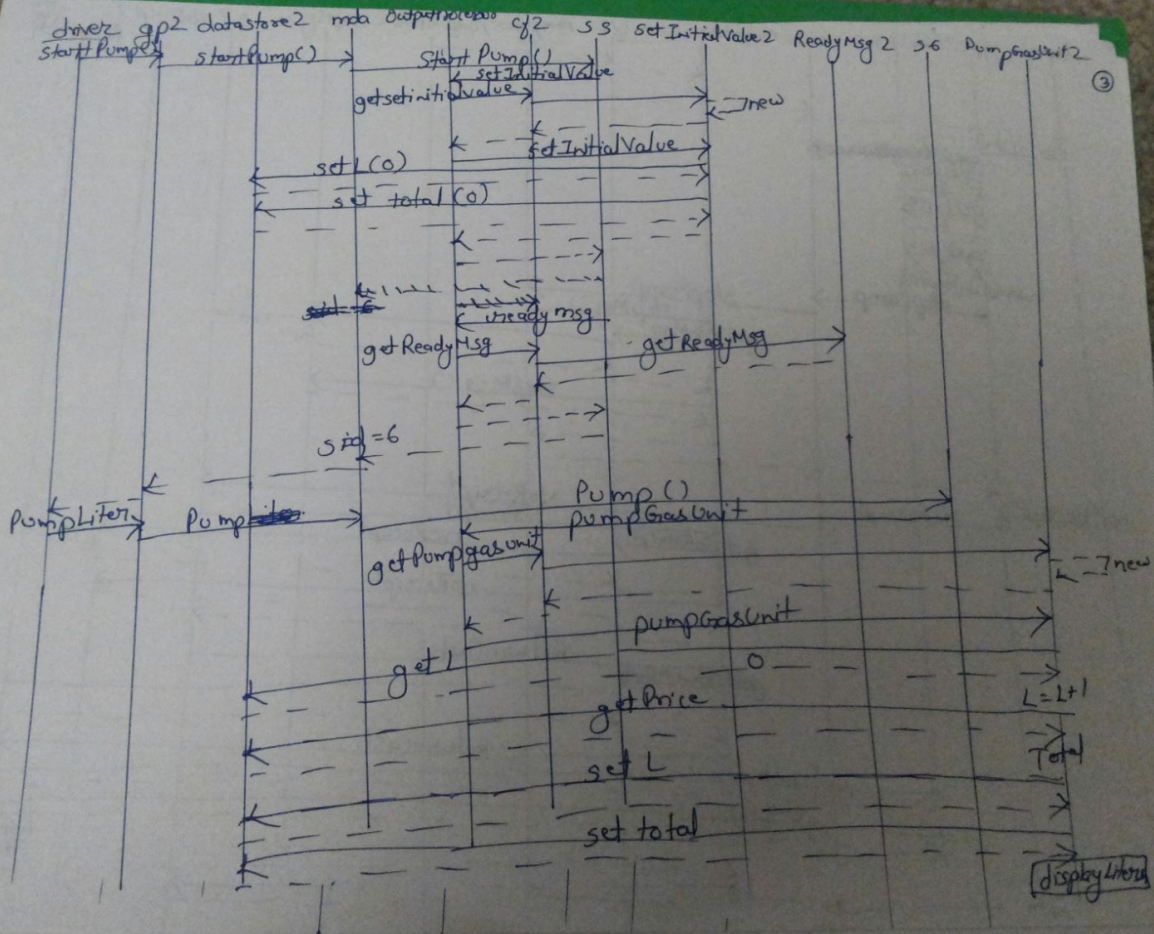 driver gp2 datastore2 mda cf2 s5 setInitialValue2 ReadyMsg2 s6 PumpGasUnit2
3
startPump() startPump()
setInitialValue
getsetinitialvalue new
setInitialValue
setL(0)
set total(0)
readymsg
getReadyMsg getReadyMsg
sid=6
Pump()
PumpLiter Pump pumpGasUnit
getPumpgasunit new
pumpGasUnit
get L 0
getPrice L=L+1
Total
set L
set total
displayLiters